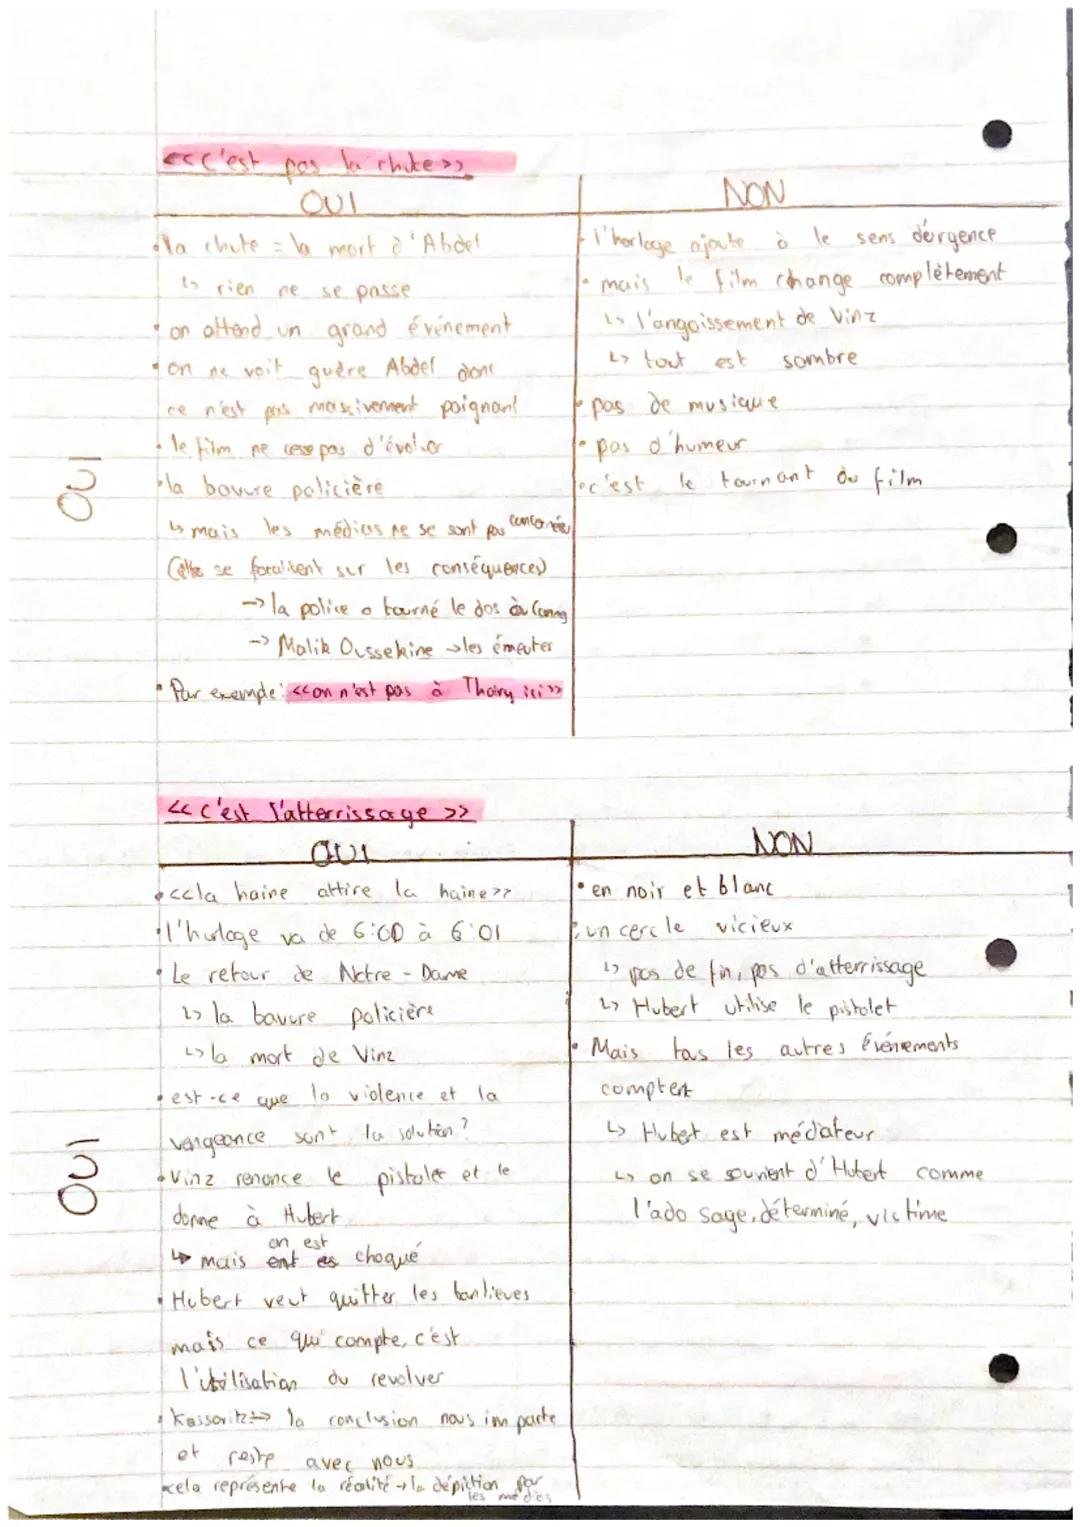 <<C'est pas la chute>>
OUI
NON
•la chute = la mort d'Abdel
↳ rien ne se passe
• on attend un grand événement
• on ne voit guère Abdel donc
ce n'est pas massivement poignant
• le film ne cesse pas d'évoluer
•la bavure policière
↳ mais les médias ne se sont pas concernés
se focalisent sur les conséquences)
-> la police a tourné le dos
-> Malik Oussekine → les émeutes
• Par exemple: <<on n'est pas à Thoiry ici>>
• l'horloge ajoute à le sens d'ergence
• mais le film change complètement
↳ l'angoissement de Vinz
↳ tout est sombre
• pas de musique
• pas d'humeur
• c'est le tournant du film
OUI
<< C'est l'atterrissage >>
OUI
NON
• <<la haine attire la haine>>
• l'horloge va de 6:00 à 6:01
• Le retour de Notre-Dame
↳ la bavure policière
↳ la mort de Vinz
• est-ce que la violence et la
vengeance sont la solution?
• Vinz renonce le pistolet et le
donne à Hubert
on est
↳ mais choqué
• Hubert veut quitter les banlieues
mais ce qui compte, c'est
l'utilisation du revolver
• Kassovitz → la conclusion nous importe
et reste avec nous
•cela représente la réalité → la dépiction par
les médias
• en noir et blanc
• un cercle vicieux
↳ pas de fin, pas d'atterrissage
↳ Hubert utilise le pistolet
• Mais tous les autres événements
comptent
↳ Hubert est médiateur
↳ on se souvient d'Hubert comme
l'ado sage, déterminé, victime
OUI